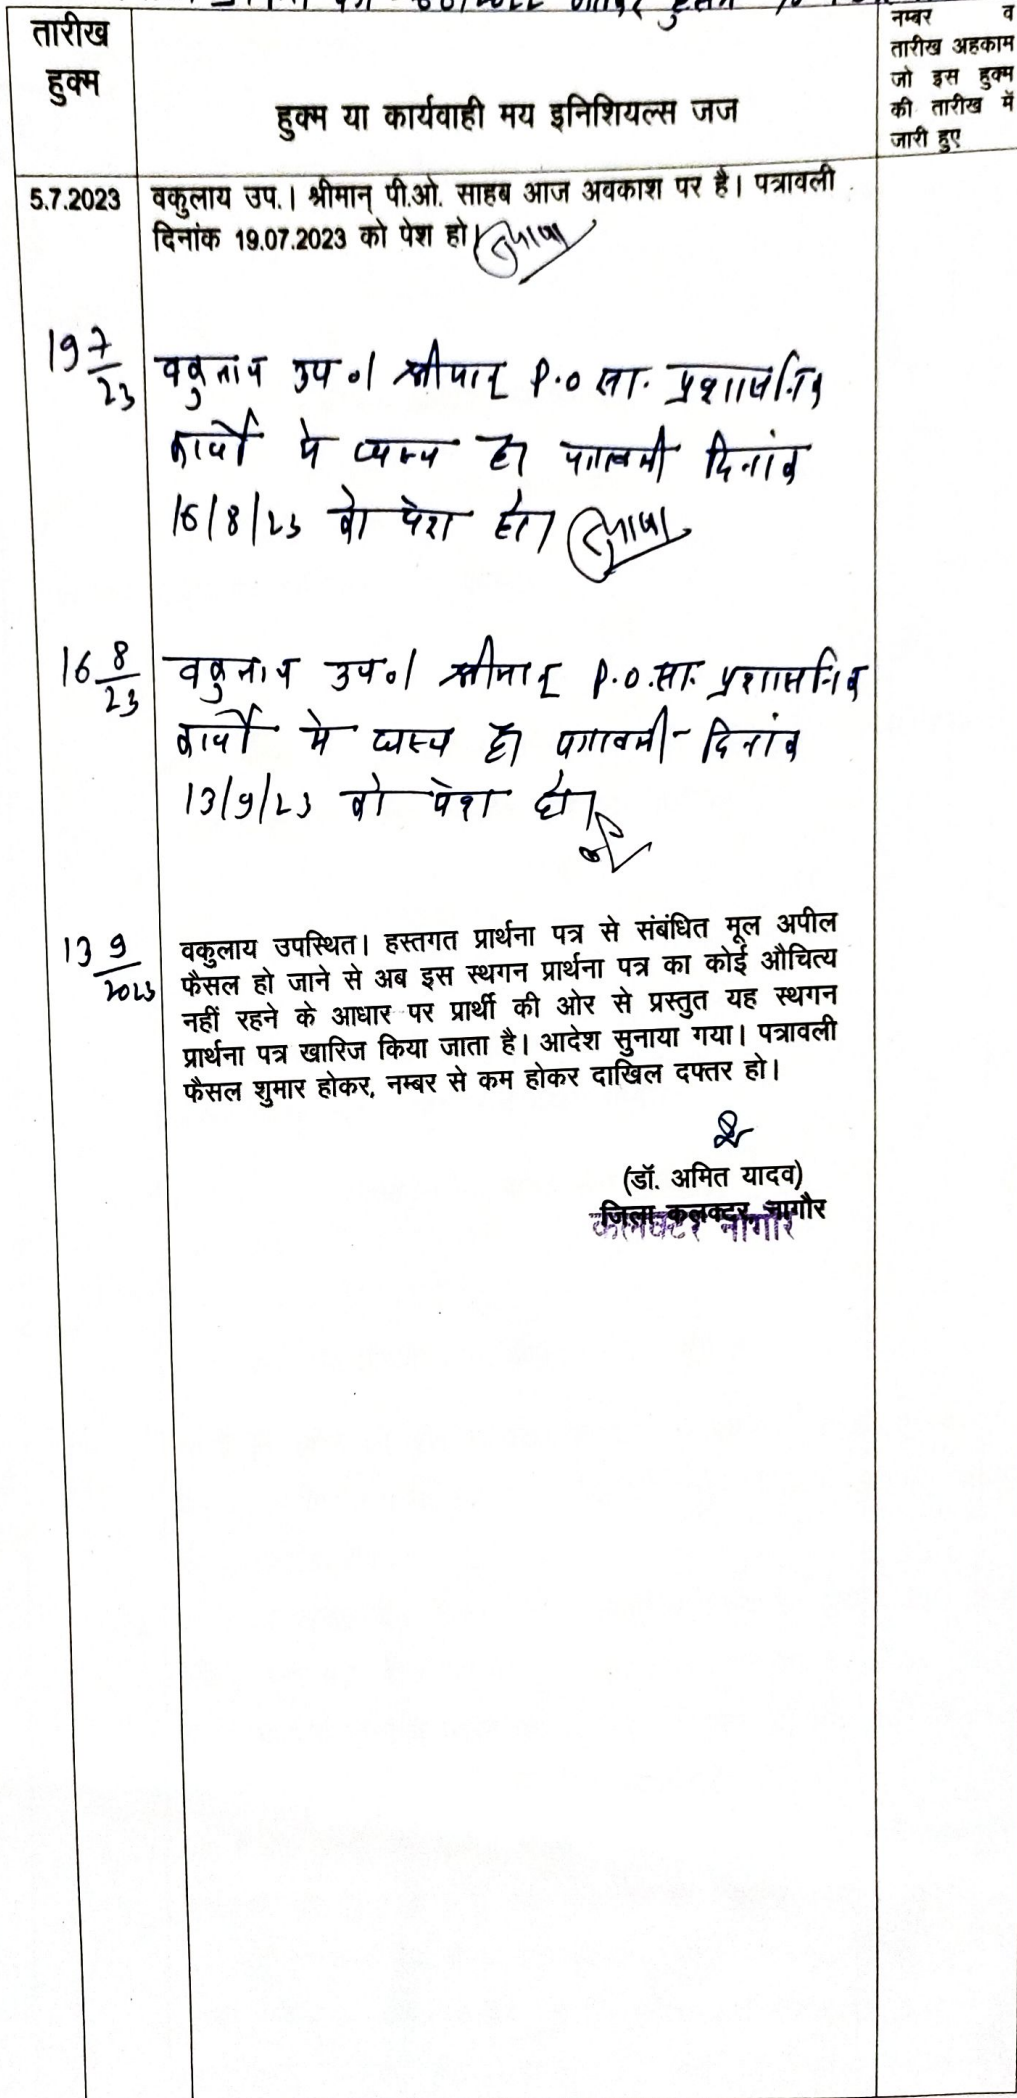 तारीख
हुक्म
हुक्म या कार्यवाही मय इनिशियल्स जज
नम्बर व
तारीख अहकाम
जो इस हुक्म
की तारीख में
जारी हुए
5.7.2023 वकुलाय उप.। श्रीमान् पी.ओ. साहब आज अवकाश पर है। पत्रावली
दिनांक 19.07.2023 को पेश हो।
19 7/23 वकुलाय उप०। श्रीमान् P.O सा. प्रशासनिक
कार्यो मे व्यस्थ है। पत्रावली दिनांक
16/8/23 को पेश हो।
16 8/23 वकुलाय उप०। श्रीमान् P.O.सा. प्रशासनिक
कार्यो मे व्यस्थ है। पत्रावली दिनांक
13/9/23 को पेश हो।
13 9/2023 वकुलाय उपस्थित। हस्तगत प्रार्थना पत्र से संबंधित मूल अपील
फैसल हो जाने से अब इस स्थगन प्रार्थना पत्र का कोई औचित्य
नहीं रहने के आधार पर प्रार्थी की ओर से प्रस्तुत यह स्थगन
प्रार्थना पत्र खारिज किया जाता है। आदेश सुनाया गया। पत्रावली
फैसल शुमार होकर, नम्बर से कम होकर दाखिल दफ्तर हो।
(डॉ. अमित यादव)
जिला कलक्टर, नागौर
कलक्टर नागौर